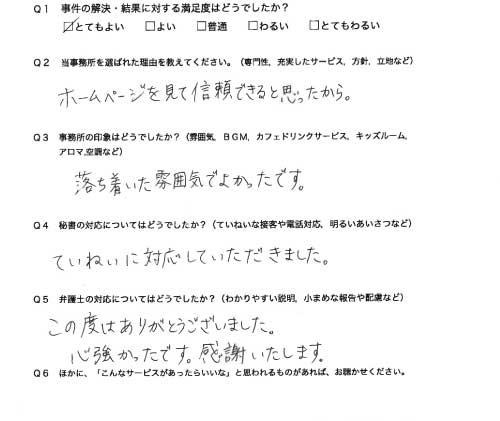 Q1 事件の解決・結果に対する満足度はどうでしたか？
☑とてもよい □よい □普通 □わるい □とてもわるい
Q2 当事務所を選ばれた理由を教えてください。（専門性，充実したサービス，方針，立地など）
ホームページを見て信頼できると思ったから。
Q3 事務所の印象はどうでしたか？（雰囲気，BGM，カフェドリンクサービス，キッズルーム，
アロマ,空調など）
落ち着いた雰囲気でよかったです。
Q4 秘書の対応についてはどうでしたか？（ていねいな接客や電話対応，明るいあいさつなど）
ていねいに対応していただきました。
Q5 弁護士の対応についてはどうでしたか？（わかりやすい説明，小まめな報告や配慮など）
この度はありがとうございました。
心強かったです。感謝いたします。
Q6 ほかに、「こんなサービスがあったらいいな」と思われるものがあれば、お聴かせください。